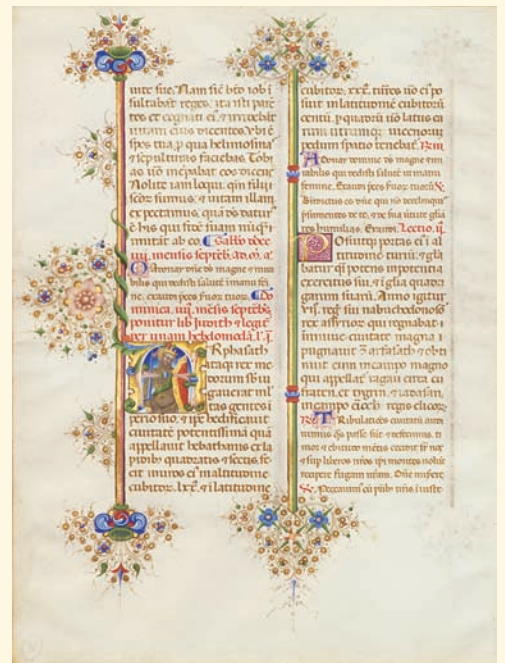 uite sue. Nam sic̄ bt̄o iob i
sultabāt reges. ita isti parē
tes et cognati ei. & irridebāt
uitam eius dicentes. ubi ē
spes tua. p qua helimosinas
& sepulturas faciebas. Tobi
as uō īcrepabat eos dicens.
Nolite ita loqui. qm̄ filij
scōr sumus. & uitam illam
expectamus. quā ds̄ datur
ē his qui fidē suam nūq̄
mutāt ab eo. Sabbo
mensis septēb. ad. m̄. a.
Adonay dn̄e ds̄ magne & mira
bilis qui dedisti salutē ī manu femi
ne. exaudi pces seruor tuor. Do
minica. mēsis septēbr̄
ponitur lib iudith & legit
per unam hebdomedā. l. i.
Arphaxath
itaq rex me
dorum sb iu
gauerat ml̄
tas gentes i
perio suo. & ip̄e hedificauit
ciuitatē potentissimā quā
appellauit hebathanis ex la
pidib quadratis & sectis. fe
cit muros ei in altitudinē
cubitor. lxx. & i latitudinē
cubitor. xxx. turres uō ei po
suit in latitudinē cubitorū
centū. p quadrū uō latus ea
rum utrumq uicenorum
pedum spatio tenebat. R
Adonay domine ds̄ magne & mi
rabilis qui dedisti salutē ī manu
femine. Exaudi pces seruor tuorū
Benedictus es dn̄e qui nō derelinquis
presumentes de te. & de sua uirtute gl̄ia
tes humilias. Exaudi. Lectio. ij.
Posuitq portas ei i al
titudinē turriū. & gl̄a
batur q̄si potens in potentia
exercitus sui. & i gl̄ia quadri
garum suarū. Anno igitur
regni sui nabuchodonosor
rex assyrior qui regnabat i
niniue ciuitate magna i
pugnauit ꝯ arfaxath & obti
nuit eum in campo magno
qui appellat̄ ragau circa eu
fraten. et tygrin. & iadasan.
in campo erioch regis elicor.
Tribulatiōes ciuitatū audi
uimus q̄s passe sūt & defecimus. ti
mor & ebitudo mētis cecidit sr̄ nos
& sup liberos nr̄os ip̄i montes nolūt
recipere fugam nr̄am. Dn̄e miserē
Peccauim cū patrib nr̄is i iuste